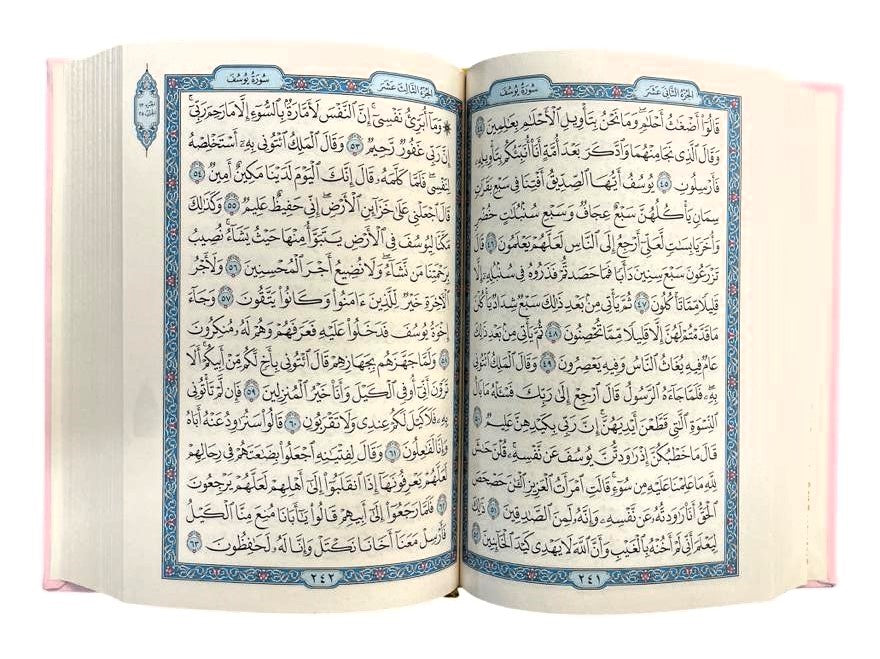 سُورَةُ يُوسُفَ
الجُزْءُ الثَّانِي عَشَرَ
قَالُوٓا۟ أَضْغَٰثُ أَحْلَٰمٍ ۖ وَمَا نَحْنُ بِتَأْوِيلِ ٱلْأَحْلَٰمِ بِعَٰلِمِينَ ٤٤
وَقَالَ ٱلَّذِى نَجَا مِنْهُمَا وَٱدَّكَرَ بَعْدَ أُمَّةٍ أَنَا۠ أُنَبِّئُكُم بِتَأْوِيلِهِۦ
فَأَرْسِلُونِ ٤٥ يُوسُفُ أَيُّهَا ٱلصِّدِّيقُ أَفْتِنَا فِى سَبْعِ بَقَرَٰتٍ
سِمَانٍ يَأْكُلُهُنَّ سَبْعٌ عِجَافٌ وَسَبْعِ سُنۢبُلَٰتٍ خُضْرٍ
وَأُخَرَ يَابِسَٰتٍ لَّعَلِّىٓ أَرْجِعُ إِلَى ٱلنَّاسِ لَعَلَّهُمْ يَعْلَمُونَ ٤٦ قَالَ
تَزْرَعُونَ سَبْعَ سِنِينَ دَأَبًا فَمَا حَصَدتُّمْ فَذَرُوهُ فِى سُنۢبُلِهِۦٓ إِلَّا
قَلِيلًا مِّمَّا تَأْكُلُونَ ٤٧ ثُمَّ يَأْتِى مِنۢ بَعْدِ ذَٰلِكَ سَبْعٌ شِدَادٌ يَأْكُلْنَ
مَا قَدَّمْتُمْ لَهُنَّ إِلَّا قَلِيلًا مِّمَّا تُحْصِنُونَ ٤٨ ثُمَّ يَأْتِى مِنۢ بَعْدِ ذَٰلِكَ
عَامٌ فِيهِ يُغَاثُ ٱلنَّاسُ وَفِيهِ يَعْصِرُونَ ٤٩ وَقَالَ ٱلْمَلِكُ ٱئْتُونِى
بِهِۦ ۖ فَلَمَّا جَآءَهُ ٱلرَّسُولُ قَالَ ٱرْجِعْ إِلَىٰ رَبِّكَ فَسْـَٔلْهُ مَا بَالُ
ٱلنِّسْوَةِ ٱلَّٰتِى قَطَّعْنَ أَيْدِيَهُنَّ ۚ إِنَّ رَبِّى بِكَيْدِهِنَّ عَلِيمٌ ٥٠
قَالَ مَا خَطْبُكُنَّ إِذْ رَٰوَدتُّنَّ يُوسُفَ عَن نَّفْسِهِۦ ۚ قُلْنَ حَٰشَ
لِلَّهِ مَا عَلِمْنَا عَلَيْهِ مِن سُوٓءٍ ۚ قَالَتِ ٱمْرَأَتُ ٱلْعَزِيزِ ٱلْـَٰٔنَ حَصْحَصَ
ٱلْحَقُّ أَنَا۠ رَٰوَدتُّهُۥ عَن نَّفْسِهِۦ وَإِنَّهُۥ لَمِنَ ٱلصَّٰدِقِينَ ٥١ ذَٰلِكَ
لِيَعْلَمَ أَنِّى لَمْ أَخُنْهُ بِٱلْغَيْبِ وَأَنَّ ٱللَّهَ لَا يَهْدِى كَيْدَ ٱلْخَآئِنِينَ ٥٢
٢٤١
سُورَةُ يُوسُفَ
الجُزْءُ الثَّالِثَ عَشَرَ
۞ وَمَآ أُبَرِّئُ نَفْسِىٓ ۚ إِنَّ ٱلنَّفْسَ لَأَمَّارَةٌۢ بِٱلسُّوٓءِ إِلَّا مَا رَحِمَ رَبِّىٓ ۚ
إِنَّ رَبِّى غَفُورٌ رَّحِيمٌ ٥٣ وَقَالَ ٱلْمَلِكُ ٱئْتُونِى بِهِۦٓ أَسْتَخْلِصْهُ
لِنَفْسِى ۖ فَلَمَّا كَلَّمَهُۥ قَالَ إِنَّكَ ٱلْيَوْمَ لَدَيْنَا مَكِينٌ أَمِينٌ ٥٤
قَالَ ٱجْعَلْنِى عَلَىٰ خَزَآئِنِ ٱلْأَرْضِ ۖ إِنِّى حَفِيظٌ عَلِيمٌ ٥٥ وَكَذَٰلِكَ
مَكَّنَّا لِيُوسُفَ فِى ٱلْأَرْضِ يَتَبَوَّأُ مِنْهَا حَيْثُ يَشَآءُ ۚ نُصِيبُ
بِرَحْمَتِنَا مَن نَّشَآءُ ۖ وَلَا نُضِيعُ أَجْرَ ٱلْمُحْسِنِينَ ٥٦ وَلَأَجْرُ
ٱلْـَٔاخِرَةِ خَيْرٌ لِّلَّذِينَ ءَامَنُوا۟ وَكَانُوا۟ يَتَّقُونَ ٥٧ وَجَآءَ
إِخْوَةُ يُوسُفَ فَدَخَلُوا۟ عَلَيْهِ فَعَرَفَهُمْ وَهُمْ لَهُۥ مُنكِرُونَ
٥٨ وَلَمَّا جَهَّزَهُم بِجَهَازِهِمْ قَالَ ٱئْتُونِى بِأَخٍ لَّكُم مِّنْ أَبِيكُمْ ۚ أَلَا
تَرَوْنَ أَنِّىٓ أُوفِى ٱلْكَيْلَ وَأَنَا۠ خَيْرُ ٱلْمُنزِلِينَ ٥٩ فَإِن لَّمْ تَأْتُونِى
بِهِۦ فَلَا كَيْلَ لَكُمْ عِندِى وَلَا تَقْرَبُونِ ٦٠ قَالُوا۟ سَنُرَٰوِدُ عَنْهُ أَبَاهُ
وَإِنَّا لَفَٰعِلُونَ ٦١ وَقَالَ لِفِتْيَٰنِهِ ٱجْعَلُوا۟ بِضَٰعَتَهُمْ فِى رِحَالِهِمْ
لَعَلَّهُمْ يَعْرِفُونَهَآ إِذَا ٱنقَلَبُوٓا۟ إِلَىٰٓ أَهْلِهِمْ لَعَلَّهُمْ يَرْجِعُونَ
٦٢ فَلَمَّا رَجَعُوٓا۟ إِلَىٰٓ أَبِيهِمْ قَالُوا۟ يَٰٓأَبَانَا مُنِعَ مِنَّا ٱلْكَيْلُ
فَأَرْسِلْ مَعَنَآ أَخَانَا نَكْتَلْ وَإِنَّا لَهُۥ لَحَٰفِظُونَ ٦٣
٢٤٢